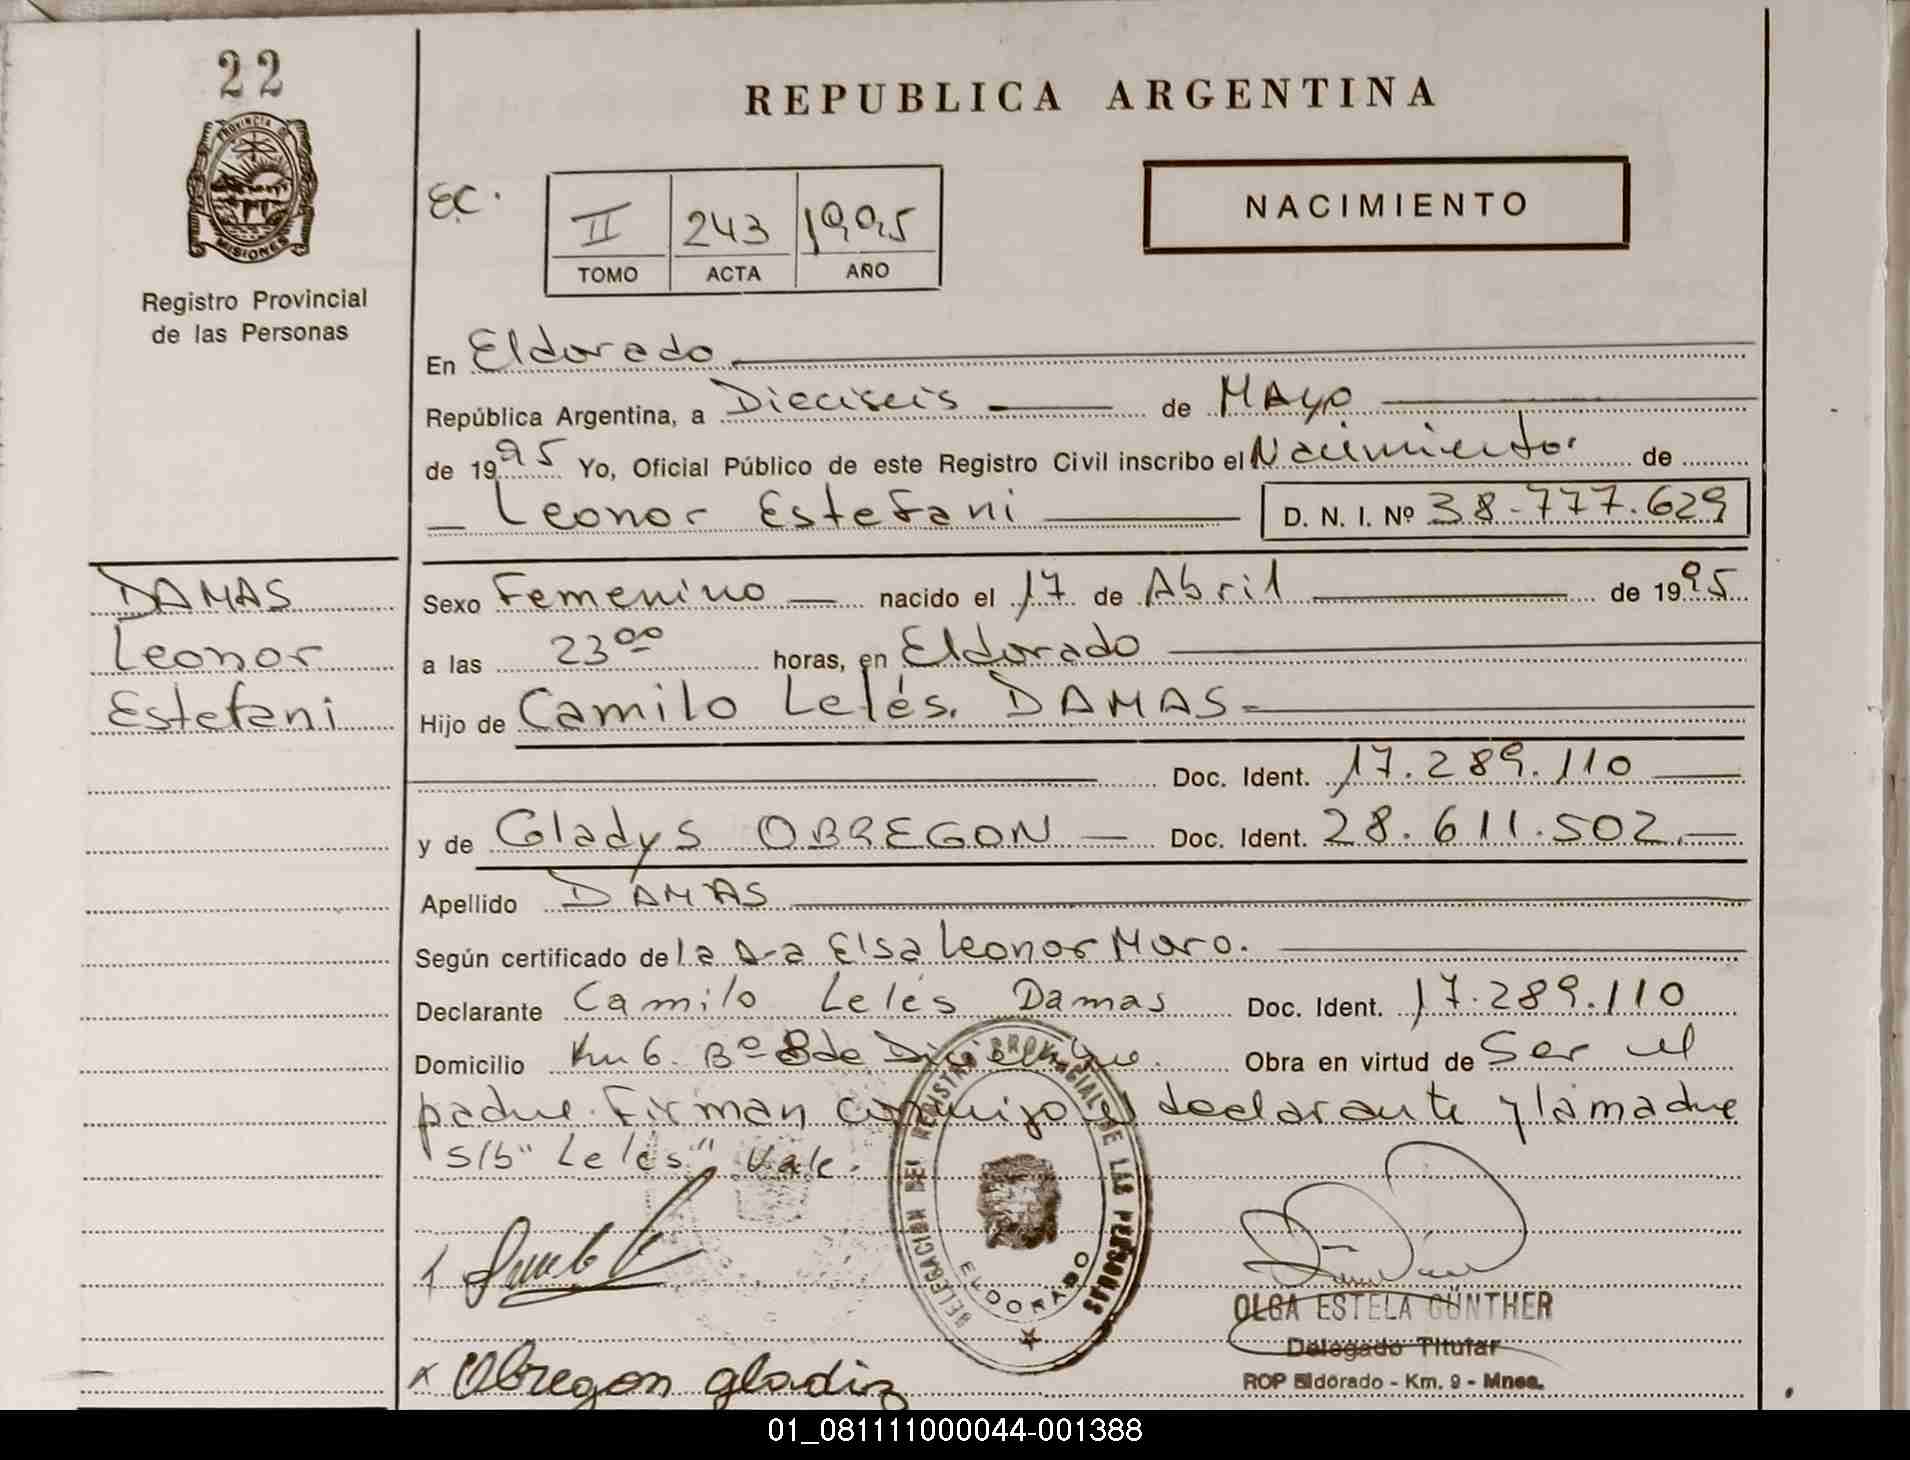 22
PROVINCIA DE
MISIONES
Registro Provincial
de las Personas
REPUBLICA ARGENTINA
EC.
II 243 1995
TOMO ACTA AÑO
NACIMIENTO
En Eldorado
República Argentina, a Dieciseis de MAyo
de 1995 Yo, Oficial Público de este Registro Civil inscribo el Nacimiento de
Leonor Estefani D. N. I. Nº 38-777.629
DAMAS
Leonor
Estefani
Sexo Femenino nacido el 17 de Abril de 1995
a las 23⁰⁰ horas, en Eldorado
Hijo de Camilo Lelés. DAMAS
Doc. Ident. 17.289.110
y de Gladys OBREGON Doc. Ident. 28.611.502
Apellido DAMAS
Según certificado de la Elsa Leonor Moro.
Declarante Camilo Lelés Damas Doc. Ident. 17.289.110
Domicilio Km 6. Bº 8 de Diciembre. Obra en virtud de Ser el
padre. Firman conmigo el declarante y la madre
S/b "Lelés" Vale.
DELEGACION DEL REGISTRO PROVINCIAL DE LAS PERSONAS
ELDORADO
OLGA ESTELA GÜNTHER
Delegado Titular
ROP Eldorado - Km. 9 - Mnes.
x Obregon gladiz
01_081111000044-001388